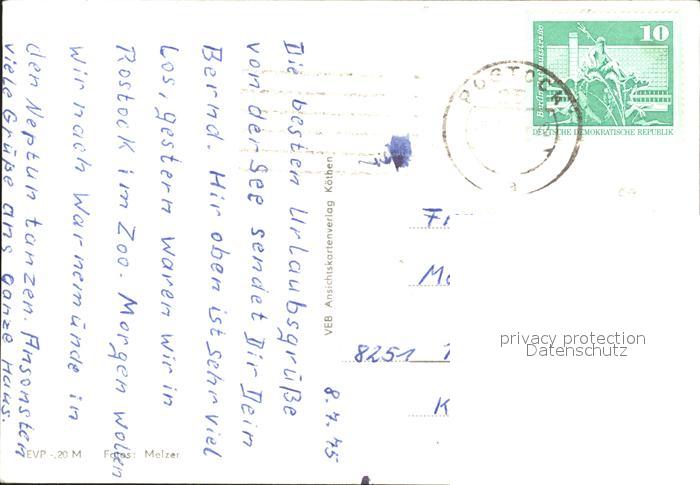 8.7.75
Die besten Urlaubsgrüße
von der See sendet Dir Dein
Bernd. Hir oben ist sehr viel
Los, gestern waren wir in
Rostock im Zoo. Morgen wolen
wir nach Warnemünde in
den Neptun tanzen. Ansonsten
viele Grüße ans ganze Haus.
EVP -,20 M Fotos: Melzer
VEB Ansichtskartenverlag Köthen
10
DEUTSCHE DEMOKRATISCHE REPUBLIK
ROSTOCK
a
8251
privacy protection
Datenschutz